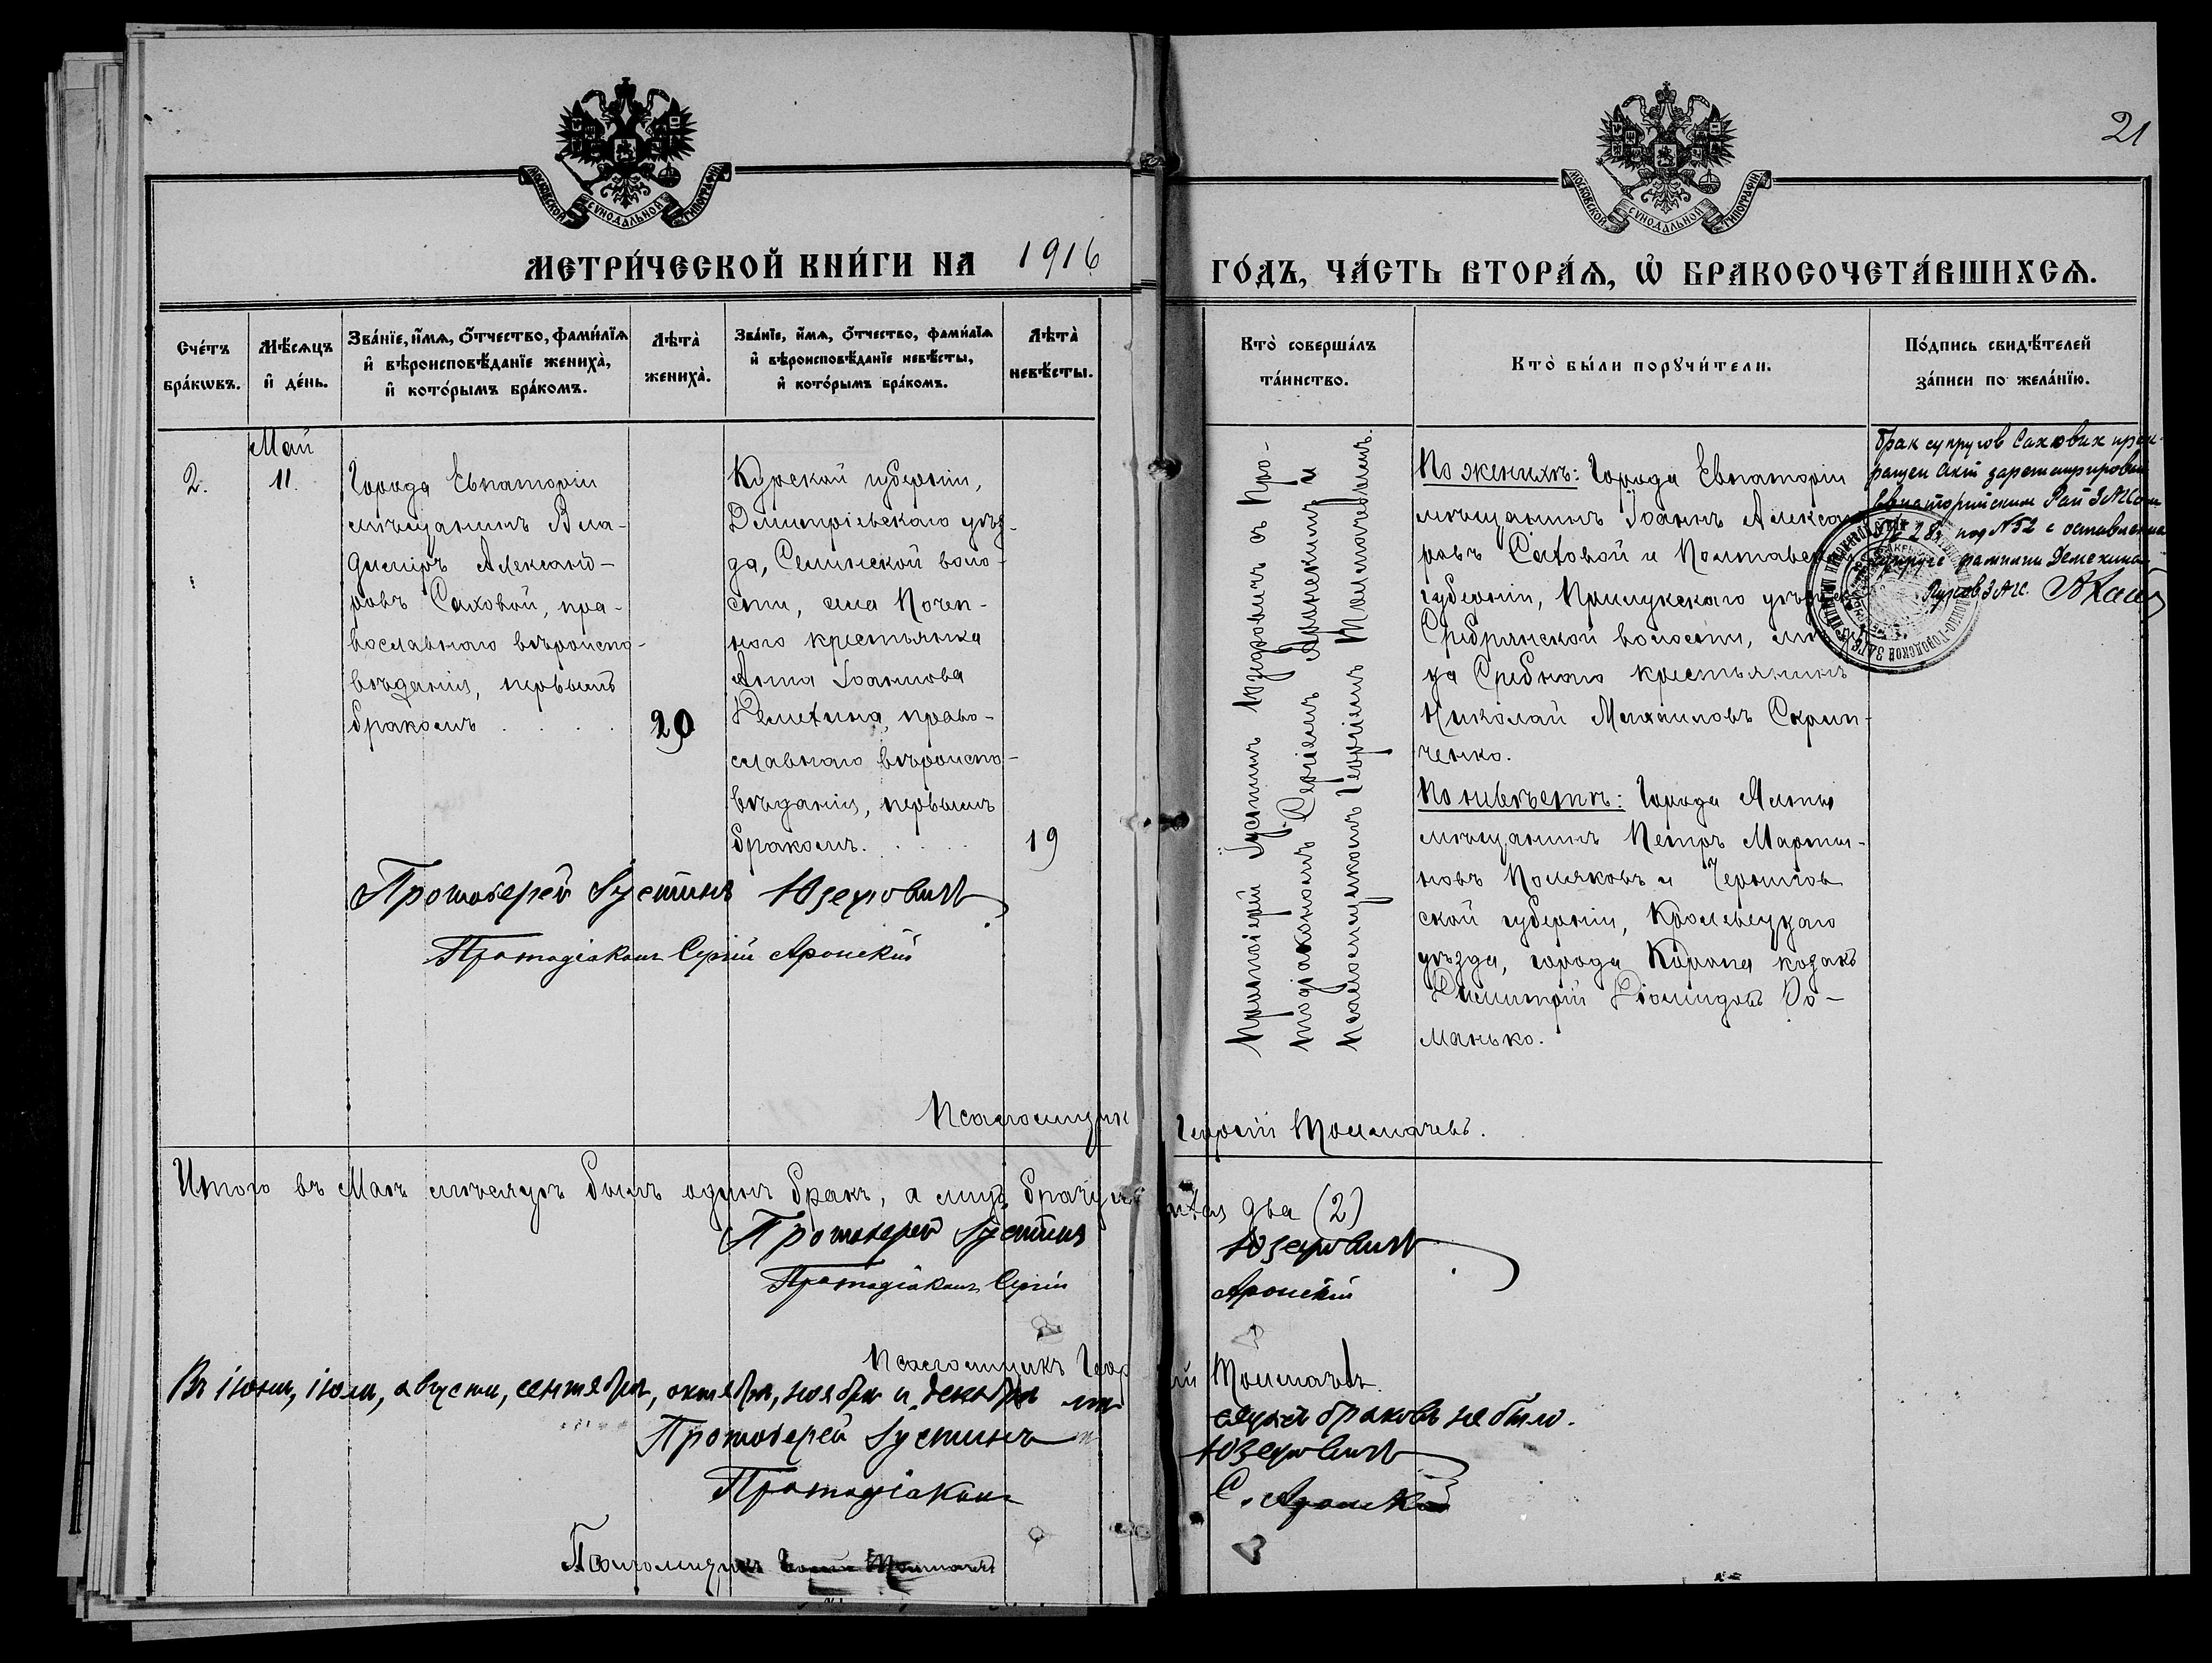 21
МОСКОВСКОЙ СѴНОДАЛЬНОЙ ТИПОГРАФІИ
МОСКОВСКОЙ СѴНОДАЛЬНОЙ ТИПОГРАФІИ
МЕТРИ́ЧЕСКОЙ КНИ́ГИ НА 1916 ГО́ДЪ, ЧА́СТЬ ВТОРА́Ѧ, Ѡ҆ БРАКОСОЧЕТА́ВШИХСѦ.
Сче́тъ
бра́кѡвъ.
Мѣ́сѧцъ
и҆ де́нь.
Зва́нїе, и҆́мѧ, ѻ҆́тчество, фами́лїѧ
и҆ вѣроисповѣ́данїе жениха̀,
и҆ кото́рымъ бра́комъ.
Лѣта̀
жениха̀.
Зва́нїе, и҆́мѧ, ѻ҆́тчество, фами́лїѧ
и҆ вѣроисповѣ́данїе невѣ́сты,
и҆ кото́рымъ бра́комъ.
Лѣта̀
невѣ́сты.
Кто̀ соверша́лъ
та́инство.
Кто̀ бы́ли порꙋчи́тели.
По́дпись свидѣ́телей
за́писи по жела́нїю.
2.
Май
11.
Города Евпаторіи
мѣщанинъ Вла-
диміръ Александ-
ровъ Саховой, пра-
вославнаго вѣроиспо-
вѣданія, первымъ
бракомъ
20
Курской губерніи,
Дмитріевскаго уѣз-
да, Селинской воло-
сти, села Почеп-
ного крестьянка
Анна Іоаннова
Демехина, право-
славнаго вѣроиспо-
вѣданія, первымъ
бракомъ.
19
Протоіерей Іустинъ Юзефовичъ и Про-
тодіаконъ Сергіемъ Аронскимъ и
псаломщикомъ Георгіемъ Толмачевымъ.
По женихѣ: Города Евпаторіи
мѣщанинъ Іоаннъ Александ
ровъ Саховой и Полтавск
губерніи, Прилукскаго уѣзд
Сребрянской волости, мѣ
ка Сребнаго крестьянинъ
Николай Михаиловъ Скрип-
ченко.
По невѣстѣ: Города Ялты
мѣщанинъ Петръ Марты-
новъ Поляковъ и Чернигов
ской губерніи, Кролевецкаго
уѣзда, города Коропа козакъ
Димитрій Діомидовъ Ро-
манько.
Брак супругов Саховых прек-
ращен Акт зарегистрирован
Евпаторийским Рай ЗАГСом
28 под №52 с оставлением
супруге фамилии Демехина
ЗАГС.
Протоіерей Іустинъ Юзефовичъ
Протодіаконъ Сергій Аронскій
Псаломщик Георгій Толмачевъ.
Итого въ Маѣ мѣсяцѣ былъ одинъ бракъ, а лицъ брачущихся два (2)
Протоіерей Іустинъ Юзефовичъ
Протодіаконъ Сергій Аронскій
Псаломщикъ Георгій Толмачевъ.
Въ іюнѣ, іюлѣ, августѣ, сентябрѣ, октябрѣ, ноябрѣ и декабрѣ мѣсяцѣ браковъ не было.
Протоіерей Іустинъ Юзефовичъ
Протодіаконъ С. Аронскій
Псаломщикъ Георгій Толмачевъ